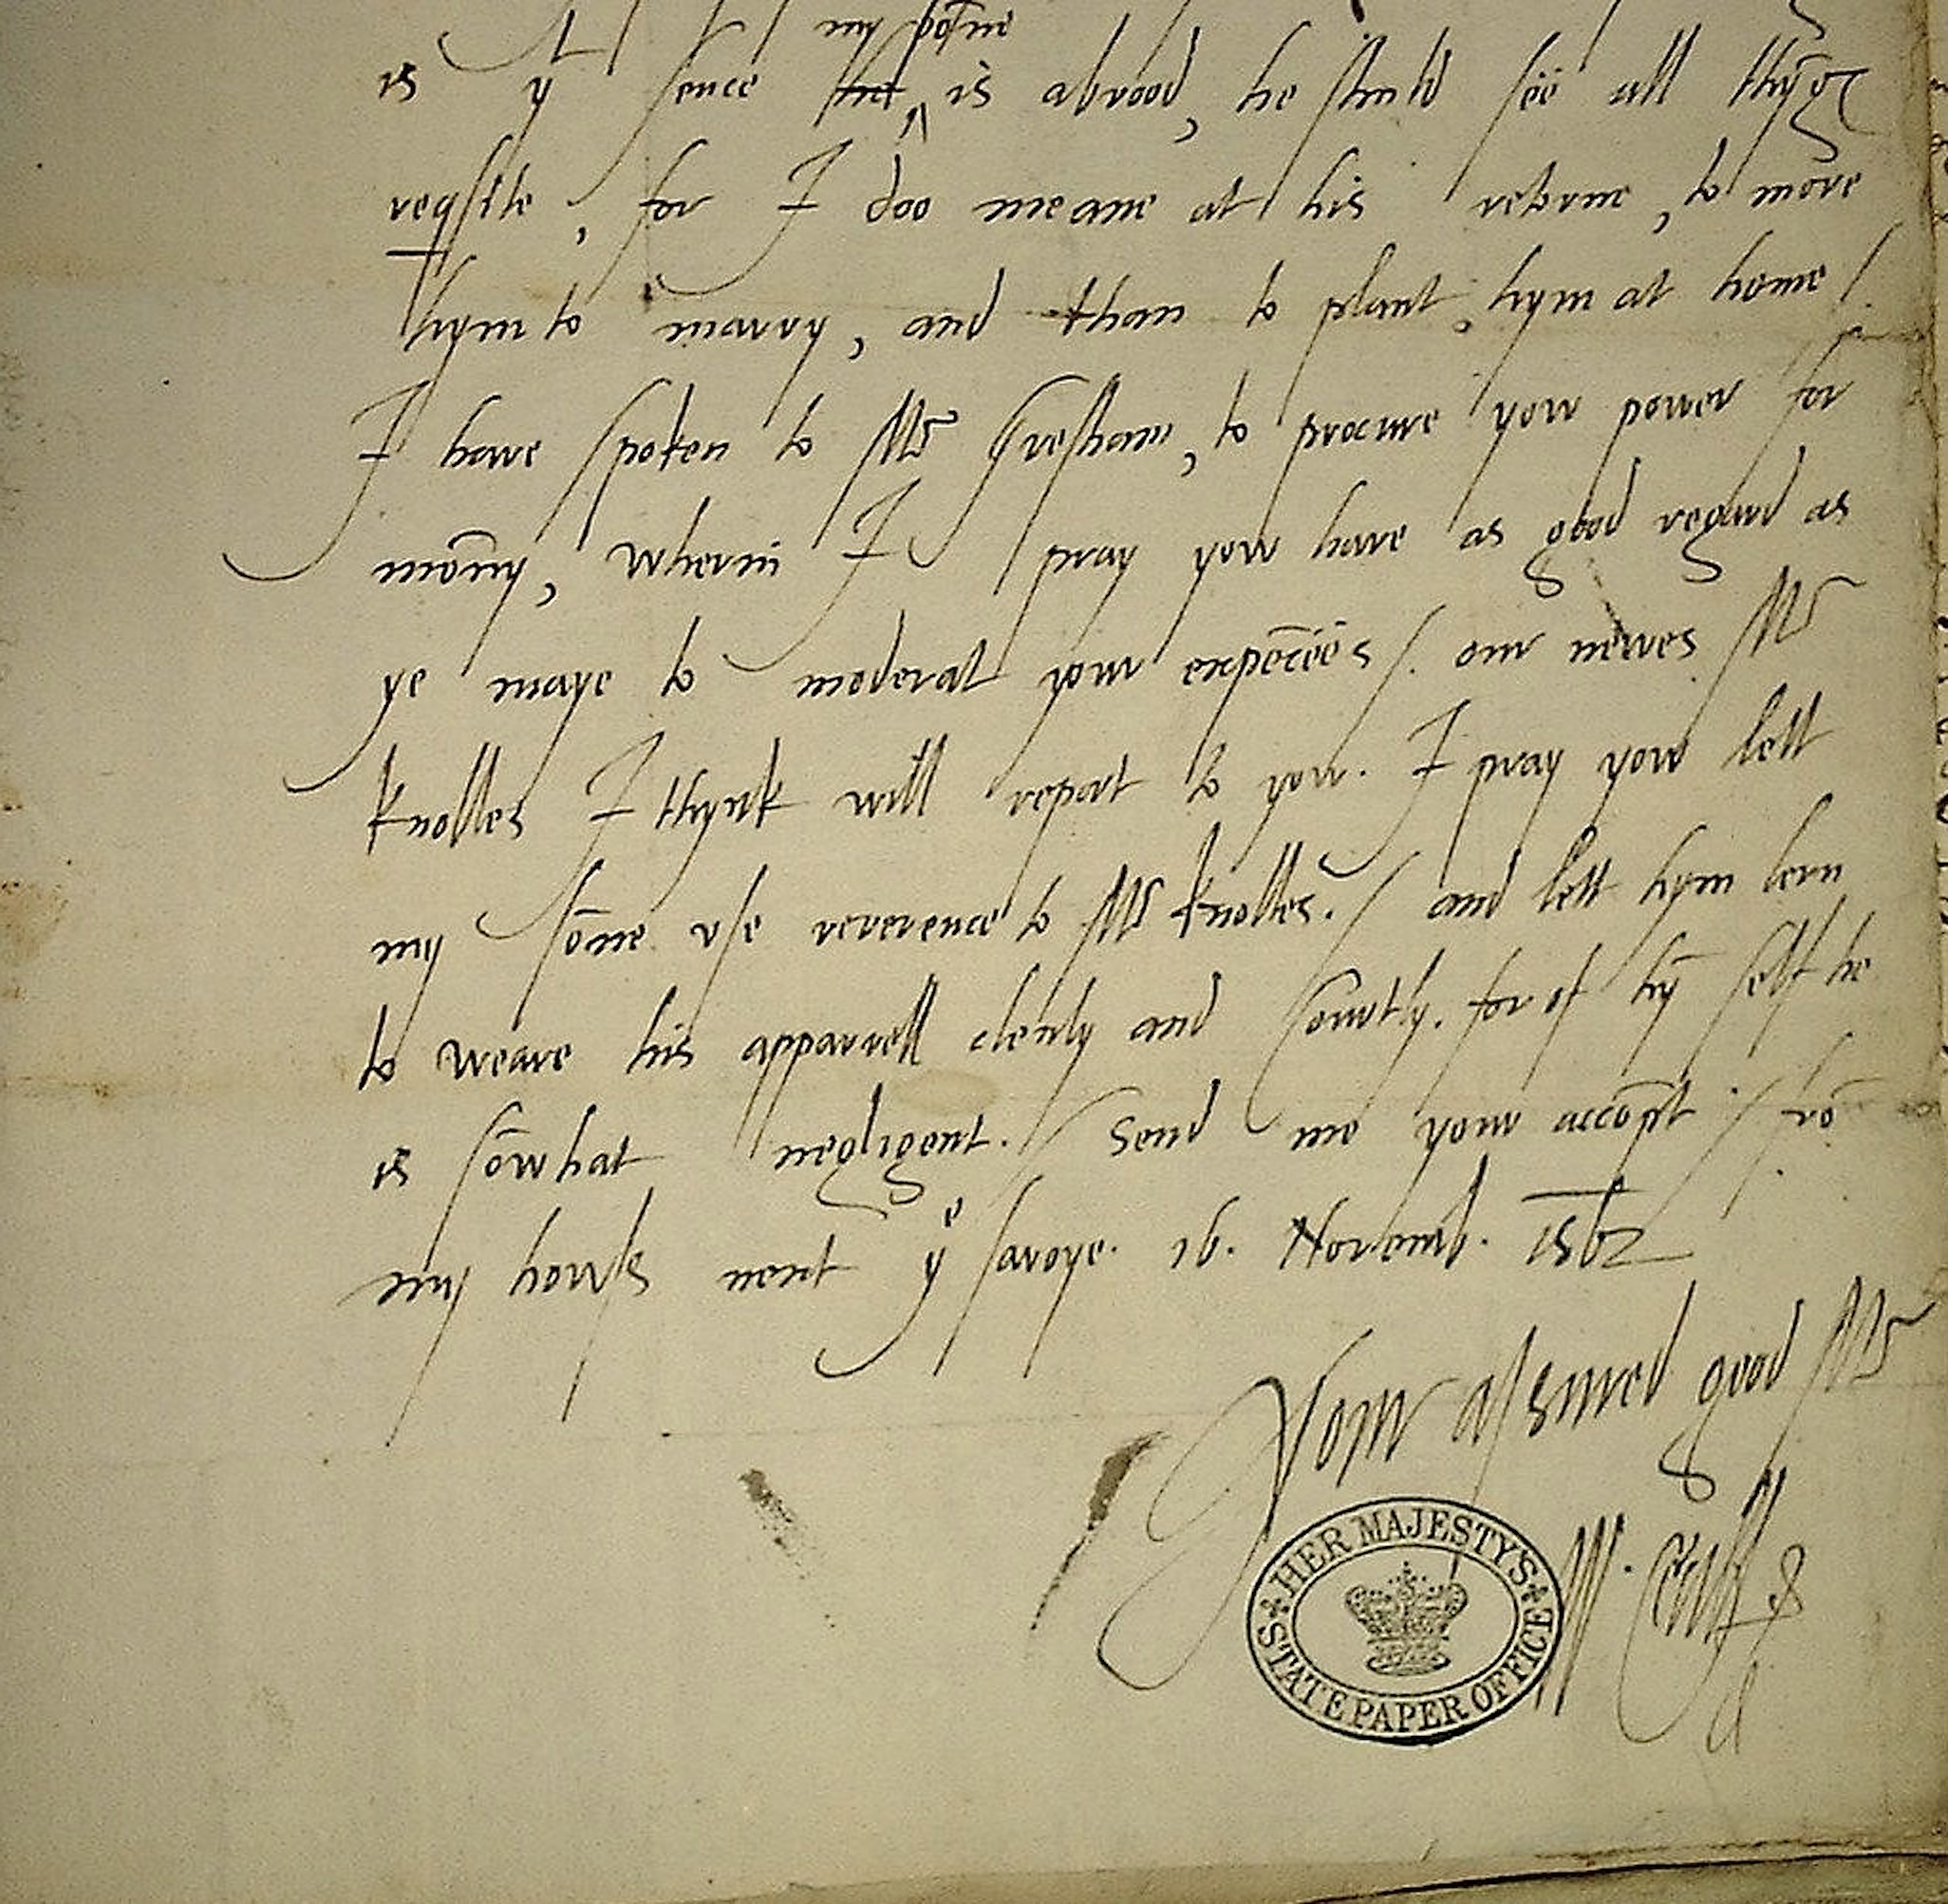 my sõne
is yt sence he is abrood, he shuld see all thyngs
reqsite, for I doo meane at his retorne, to move
hym to marry, and than to plant hym at home /.
I have spoken to Mr Gresham, to procure yow power for
mony, wherin I pray yow have as good regard as
ye maye to moderat your expẽcees /. our newes Mr
knolles I thynk will report to yow. I pray yow lett
my sõne use reverence to Mr knolles. / and lett hym lern
to weare his apparrell clenly and Courtly. for of hỹ self he
is sõwhat negligent. / Send me your accõpt ./ frõ
my howss next ye savoye. 16. Novemb. 1562
Your assured good Mr
W. Cecill
HER MAJESTY'S STATE PAPER OFFICE